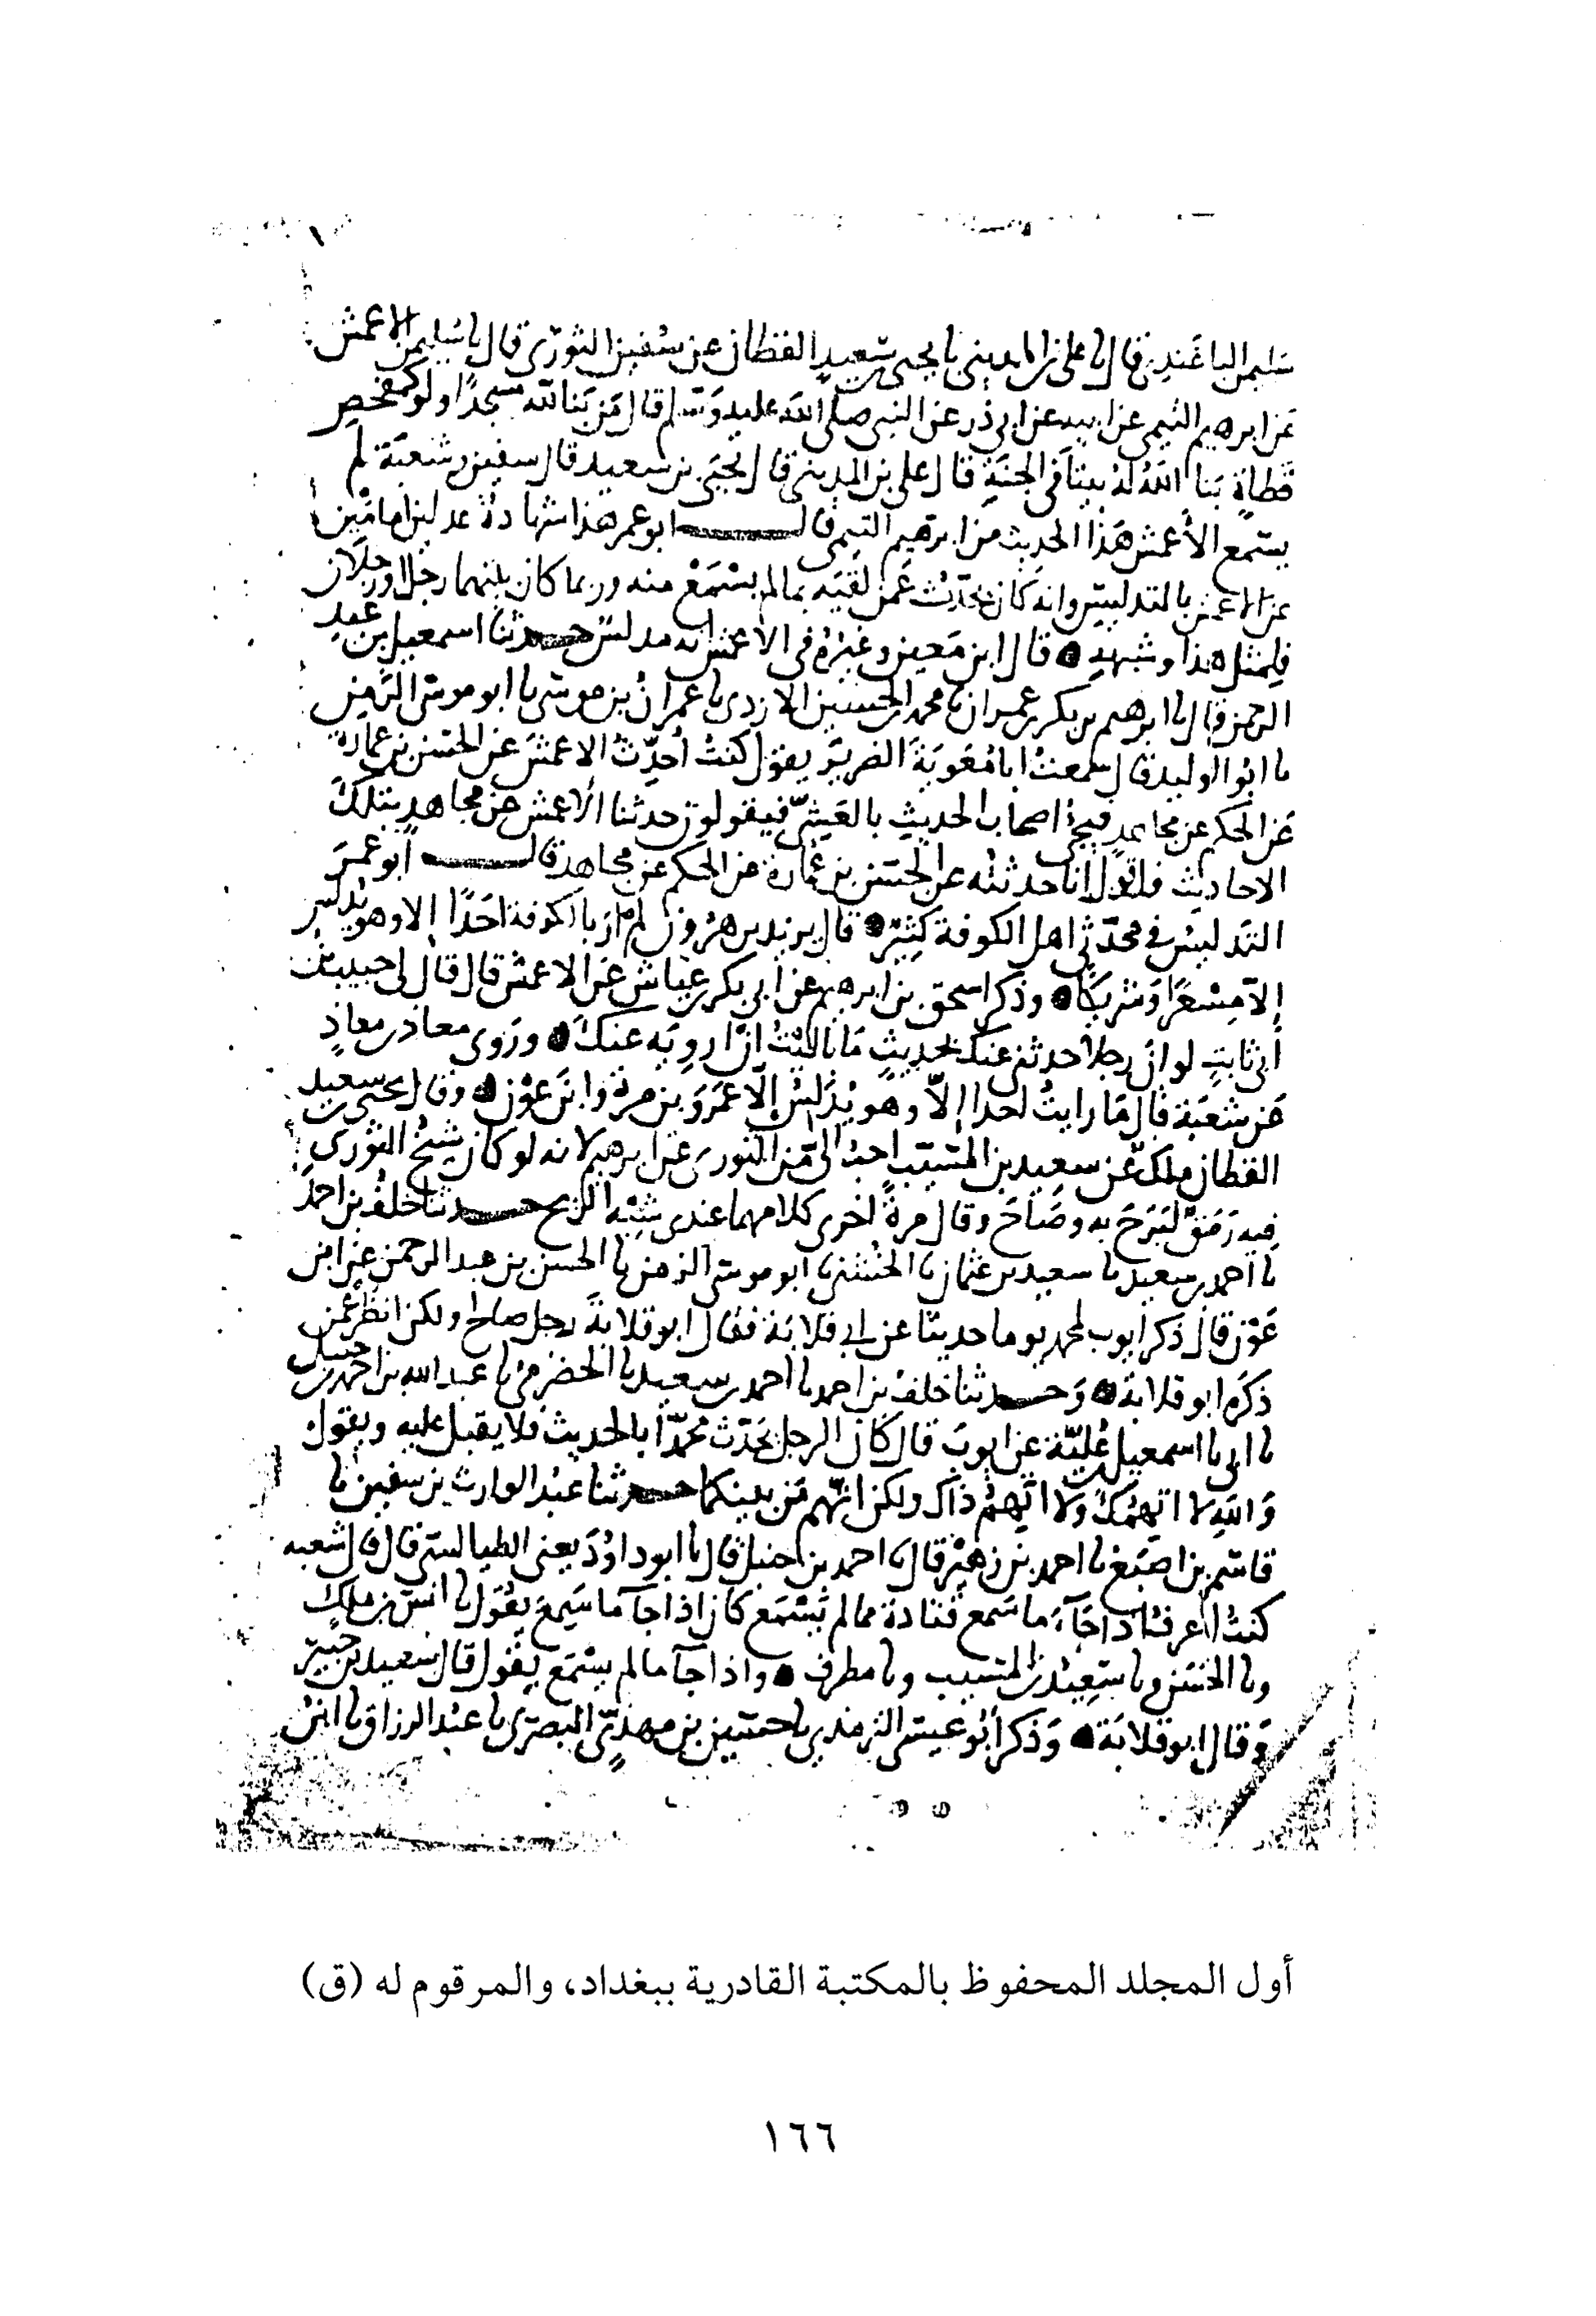 سليمن الباغندي قال نا علي بن المديني نا يحيى بن سعيد القطان عن سفين الثوري قال نا سليمن الاعمش
عن ابرهيم التيمي عن ابيه عن ابي ذر عن النبي صلى الله عليه وسلم قال من بنا لله مسجدًا ولو كمفحص
قطاةٍ بنا الله له بيتًا في الجنة قال علي بن المديني قال يحيى بن سعيد قال سفين وشعبة لم
يسمع الأعمش هذا الحديث من ابرهيم التيمي قال ابو عمر هذا شهادة عدلين امامين
عن الاعمش بالتدليس وانه كان يحدّث عمن لقيه بما لم يسمع منه وربما كان بينهما رجل او رجلان
فلمثل هذا وشبهه قال ابن معين وغيره في الاعمش انه مدلس حدثنا اسمعيل بن عبد
الرحمن قال نا ابرهيم بن بكر بن عمران نا محمد بن الحسين الازدي نا عمران بن موسى نا ابو موسى الزمن
نا ابو الوليد قال سمعت ابا معوية الضرير يقول كنت أحدّث الاعمش عن الحسن بن عمارة
عن الحكم عن مجاهد فيجئ اصحاب الحديث بالعشيّ فيقولون حدثنا الأعمش عن مجاهد بتلك
الاحاديث فاقول انا حدثته عن الحسن بن عمارة عن الحكم عن مجاهد قال أبو عمر
التدليس في محدّثي اهل الكوفة كثير قال يزيد بن هرون لم أر بالكوفة احدًا الا وهو يدلس
إلا مسعرًا وشريكًا وذكر اسحق بن ابرهيم عن أبي بكر بن عياش عن الاعمش قال قال لي حبيب بن
أبي ثابتٍ لو ان رجلا حدثني عنك بحديثٍ ما باليت ان ارويه عنك وروى معاذ بن معاذٍ
عن شعبة قال ما رايت احدا إلاّ وهو يدلس إلّا عمرو بن مرة وابن عون وقال يحيى بن سعيد
القطان ملك عن سعيد بن المسيب احب الي من الثوري عن ابرهيم لانه لو كان شيخ الثوري
فيه رمق لبرح به وصاح وقال مرةً اخرى كلاهما عندي شبه الريح حدثنا خلف بن احمد
نا احمد بن سعيد نا سعيد بن عثمان نا الخشني نا ابو موسى الزمن نا الحسن بن عبد الرحمن عن ابن
عون قال ذكر أيوب لمحمد يوما حديثا عن ابي قلابة فقال ابو قلابة رجل صالح ولكن انظر عمن
ذكره ابو قلابة وحدثنا خلف بن احمد نا احمد بن سعيد نا الحضرمي نا عبد الله بن احمد بن حنبل
نا ابي نا اسمعيل بن عليّة عن ايوب قال كان الرجل يحدّث محمّدًا بالحديث فلا يقبل عليه ويقول
والله لا اتهمك ولا اتهم ذاك ولكن اتهم من بينكما حدثنا عبد الوارث بن سفين نا
قاسم بن اصبغ نا احمد بن زهير قال نا احمد بن حنبل قال نا ابو داوُد يعني الطيالسي قال قال شعبه
كنت اعرف اذا جآء ما سمع قتادة مما لم يسمع كان اذا جآ ما سمع يقول نا انس بن ملك
ونا الحسن ونا سعيد بن المسيب ونا مطرف واذا جآ ما لم يسمع يقول قال سعيد بن جبير
وقال ابو قلابة وذكر أبو عيسى الترمذي نا حسين بن مهدي البصري نا عبد الرزاق نا ابن
أول المجلد المحفوظ بالمكتبة القادرية ببغداد، والمرقوم له (ق)
١٦٦